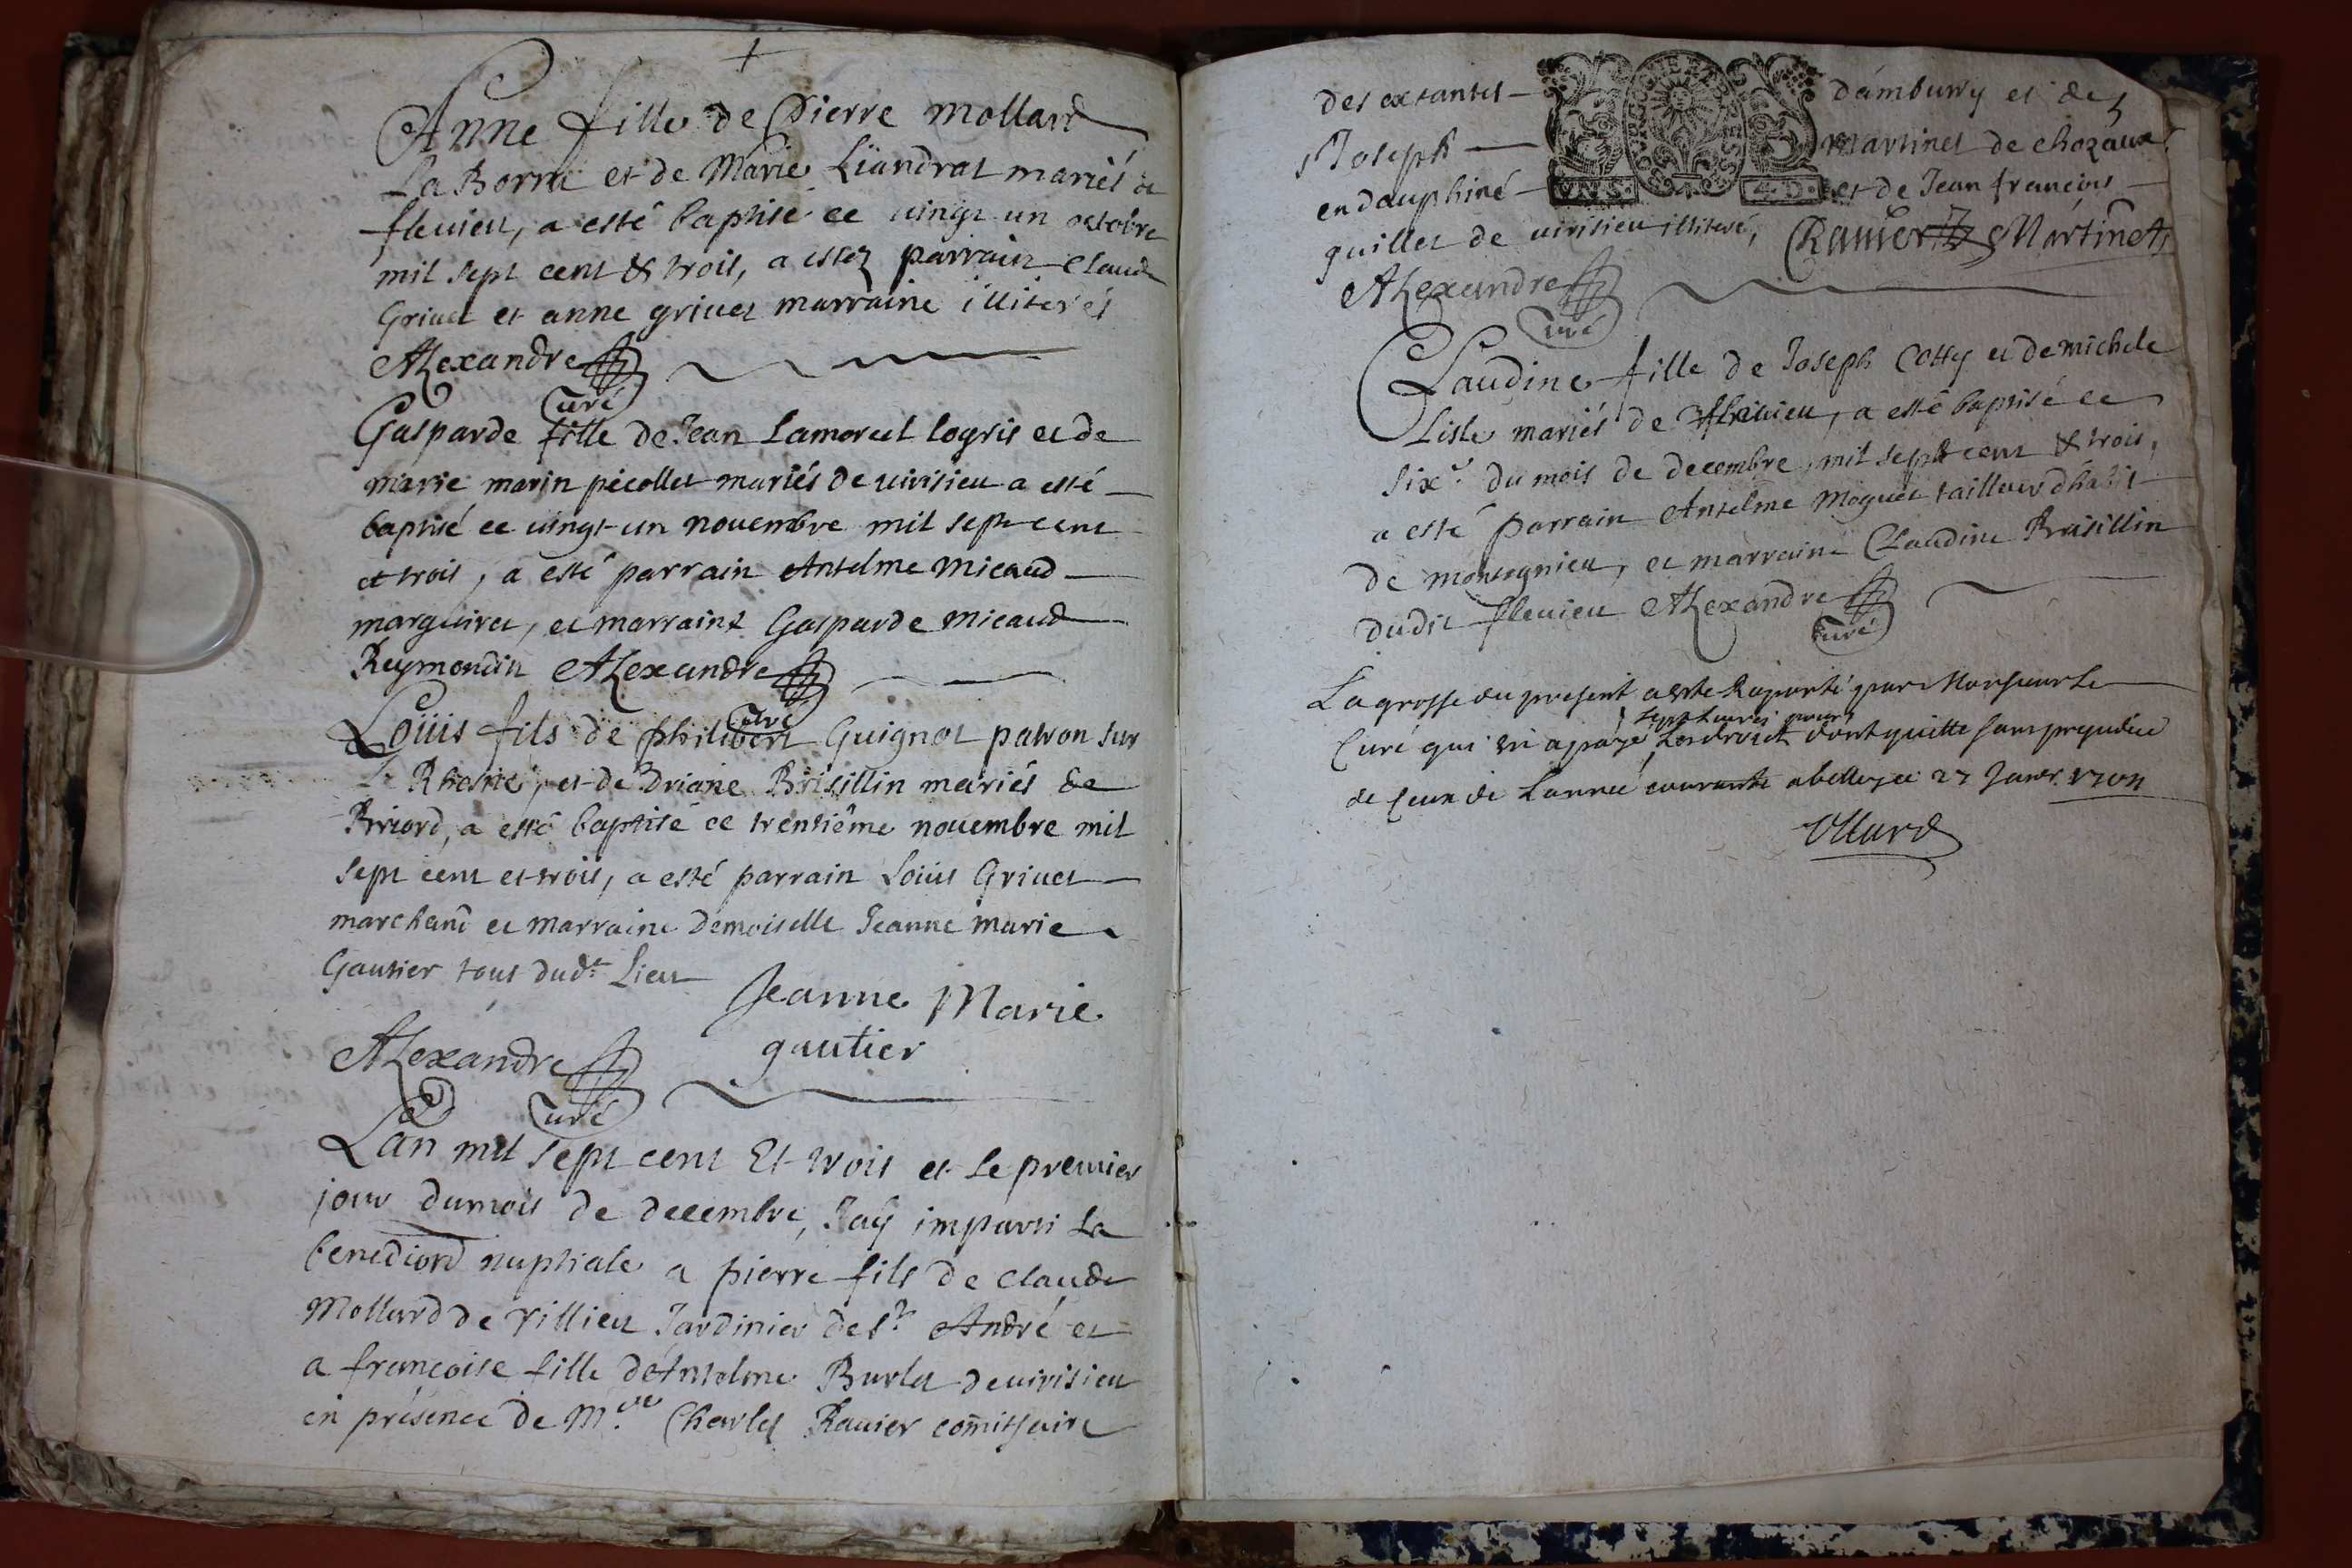 Anne fille de Pierre mollard
La Borni et de Marie Liandrat mariés a
fleuieu, a esté baptisé ce uingt un octobre
mil sept cent & trois, a estez parrain Claude
Griuet et anne griuet marraine illiterés
Alexandre
Curé
Gasparde fille de Jean Lamorcel logris et de
marie marin pecollet mariés de uirisieu a esté
baptisé ce uingt-un nouembre mil sept cent
et trois, a esté parrain Antelme micaud
et marraine Gasparde micaud
Reymondin Alexandre
Curé
Loüis fils de philibert Guignot patron sur
Le Rhosne, et de Driane Brisillin mariés de
Briord, a esté baptisé ce trentiême nouembre mil
sept cent et trois, a esté parrain Loüis Griuet
marchand et marraine Demoiselle Jeanne marie
Gautier tous dud.t Lieu
Jeanne Marie
gautier
Alexandre
Curé
Lan mil sept cent Et trois et le premier
jour dumois de decembre, Jaÿ imparti La
nuptiale a pierre fils de claude
Mollard de Villieu Jardinier de S.t André et
a françoise fille dAntelme Burlet de uirisieu
en présence de M. Charles Rauier com̃issaire
des extantes dámbuny et de
Joseph martinet de chozaux
en dauphiné et de Jean françois
guillet de uirisieu illiteré, Rauier Martinet
Alexandre
Curé
Claudine fille de Joseph Cotty et de michele
Lisle mariés de fleuieu, a esté baptisé ce
six.e du mois de decembre mil sept cent & trois,
a esté parrain Antelme Moguet tailleur dhabit
de montagnieu, et marraine Claudine Brisillin
dudit fleuieu Alexandre
Curé
La grosse du present a este Raporté par Monsieur Le
sept liures pour
Curé qui en a payé Les droits dont quitte sans prejudice
de ceux de Lannee courante a belley ce 27 Janer. 1704